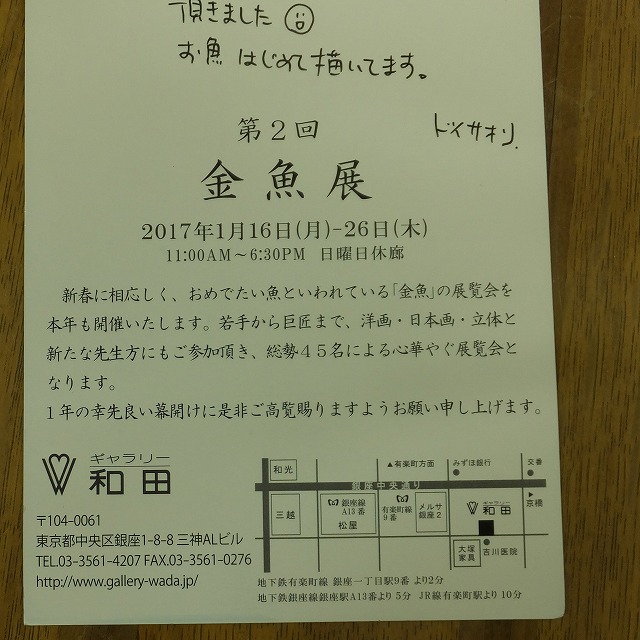 頂きました
お魚 はじめて描いてます。
ドイサオリ.
第2回
金魚展
2017年1月16日(月)-26日(木)
11:00AM～6:30PM 日曜日休廊
新春に相応しく、おめでたい魚といわれている「金魚」の展覧会を
本年も開催いたします。若手から巨匠まで、洋画・日本画・立体と
新たな先生方にもご参加頂き、総勢45名による心華やぐ展覧会と
なります。
1年の幸先良い幕開けに是非ご高覧賜りますようお願い申し上げます。
ギャラリー
和田
〒104-0061
東京都中央区銀座1-8-8 三神ALビル
TEL.03-3561-4207 FAX.03-3561-0276
http://www.gallery-wada.jp/
和光
▲有楽町方面
みずほ銀行
交番
銀座中央通り
▶京橋
三越
銀座線
A13番
松屋
有楽町線
9番
メルサ
銀座2
ギャラリー
和田
大塚
家具
吉川医院
地下鉄有楽町線 銀座一丁目駅9番 より2分
地下鉄銀座線銀座駅A13番より5分 JR線有楽町駅より10分